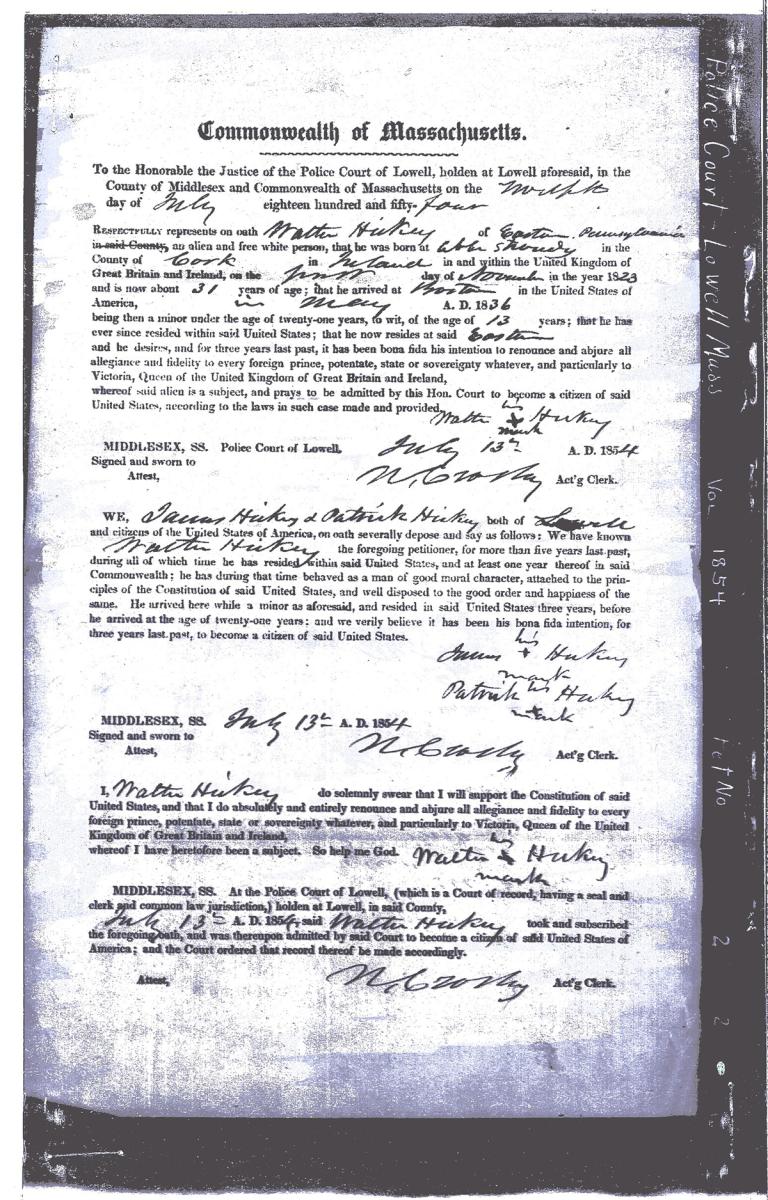 Commonwealth of Massachusetts.
To the Honorable the Justice of the Police Court of Lowell, holden at Lowell aforesaid, in the
County of Middlesex and Commonwealth of Massachusetts on the Twelfth
day of July eighteen hundred and fifty-four
RESPECTFULLY represents on oath Walter Hickey of Eastern Pennsylvania
in said County, an alien and free white person, that he was born at in the
County of Cork in Ireland in and within the United Kingdom of
Great Britain and Ireland, on the first day of November in the year 1823
and is now about 31 years of age; that he arrived at Boston in the United States of
America, in May A. D. 1836
being then a minor under the age of twenty-one years, to wit, of the age of 13 years; that he has
ever since resided within said United States; that he now resides at said Eastern
and he desires, and for three years last past, it has been bona fida his intention to renounce and abjure all
allegiance and fidelity to every foreign prince, potentate, state or sovereignty whatever, and particularly to
Victoria, Queen of the United Kingdom of Great Britain and Ireland,
whereof said alien is a subject, and prays to be admitted by this Hon. Court to become a citizen of said
United States, according to the laws in such case made and provided.
Walter his + mark Hickey
MIDDLESEX, SS. Police Court of Lowell, July 13th A. D. 1854
Signed and sworn to
Attest, N. Crosby Act'g Clerk.
WE, James Hickey & Patrick Hickey both of Lowell
and citizens of the United States of America, on oath severally depose and say as follows: We have known
Walter Hickey the foregoing petitioner, for more than five years last past,
during all of which time he has resided within said United States, and at least one year thereof in said
Commonwealth; he has during that time behaved as a man of good moral character, attached to the prin-
ciples of the Constitution of said United States, and well disposed to the good order and happiness of the
same. He arrived here while a minor as aforesaid, and resided in said United States three years, before
he arrived at the age of twenty-one years: and we verily believe it has been his bona fida intention, for
three years last past, to become a citizen of said United States.
James his + mark Hickey
Patrick his + mark Hickey
MIDDLESEX, SS. July 13th A. D. 1854
Signed and sworn to
Attest, N. Crosby Act'g Clerk.
I, Walter Hickey do solemnly swear that I will support the Constitution of said
United States, and that I do absolutely and entirely renounce and abjure all allegiance and fidelity to every
foreign prince, potentate, state or sovereignty whatever, and particularly to Victoria, Queen of the United
Kingdom of Great Britain and Ireland,
whereof I have heretofore been a subject. So help me God. Walter his + mark Hickey
MIDDLESEX, SS. At the Police Court of Lowell, (which is a Court of record, having a seal and
clerk and common law jurisdiction,) holden at Lowell, in said County,
July 13th A. D. 1854, said Walter Hickey took and subscribed
the foregoing oath, and was thereupon admitted by said Court to become a citizen of said United States of
America; and the Court ordered that record thereof be made accordingly.
Attest, N. Crosby Act'g Clerk.
Police Court - Lowell Mass Vol 1854 Pet No 2 2